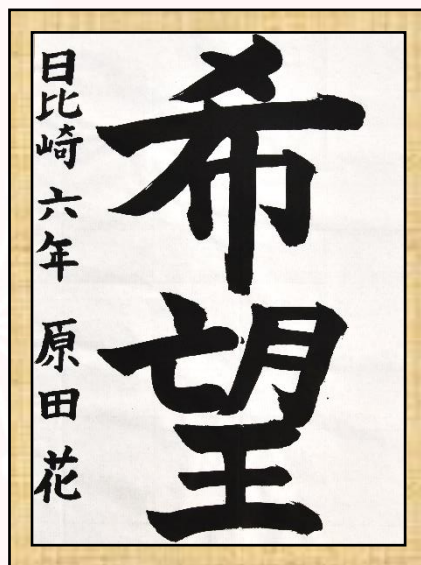 希望
日比崎 六年 原田 花